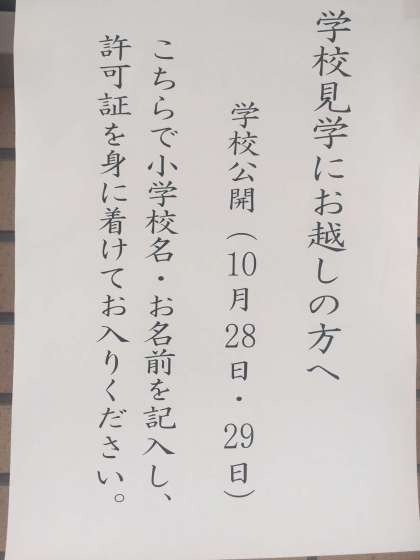 学校見学にお越しの方へ
学校公開（10月28日・29日）
こちらで小学校名・お名前を記入し、
許可証を身に着けてお入りください。